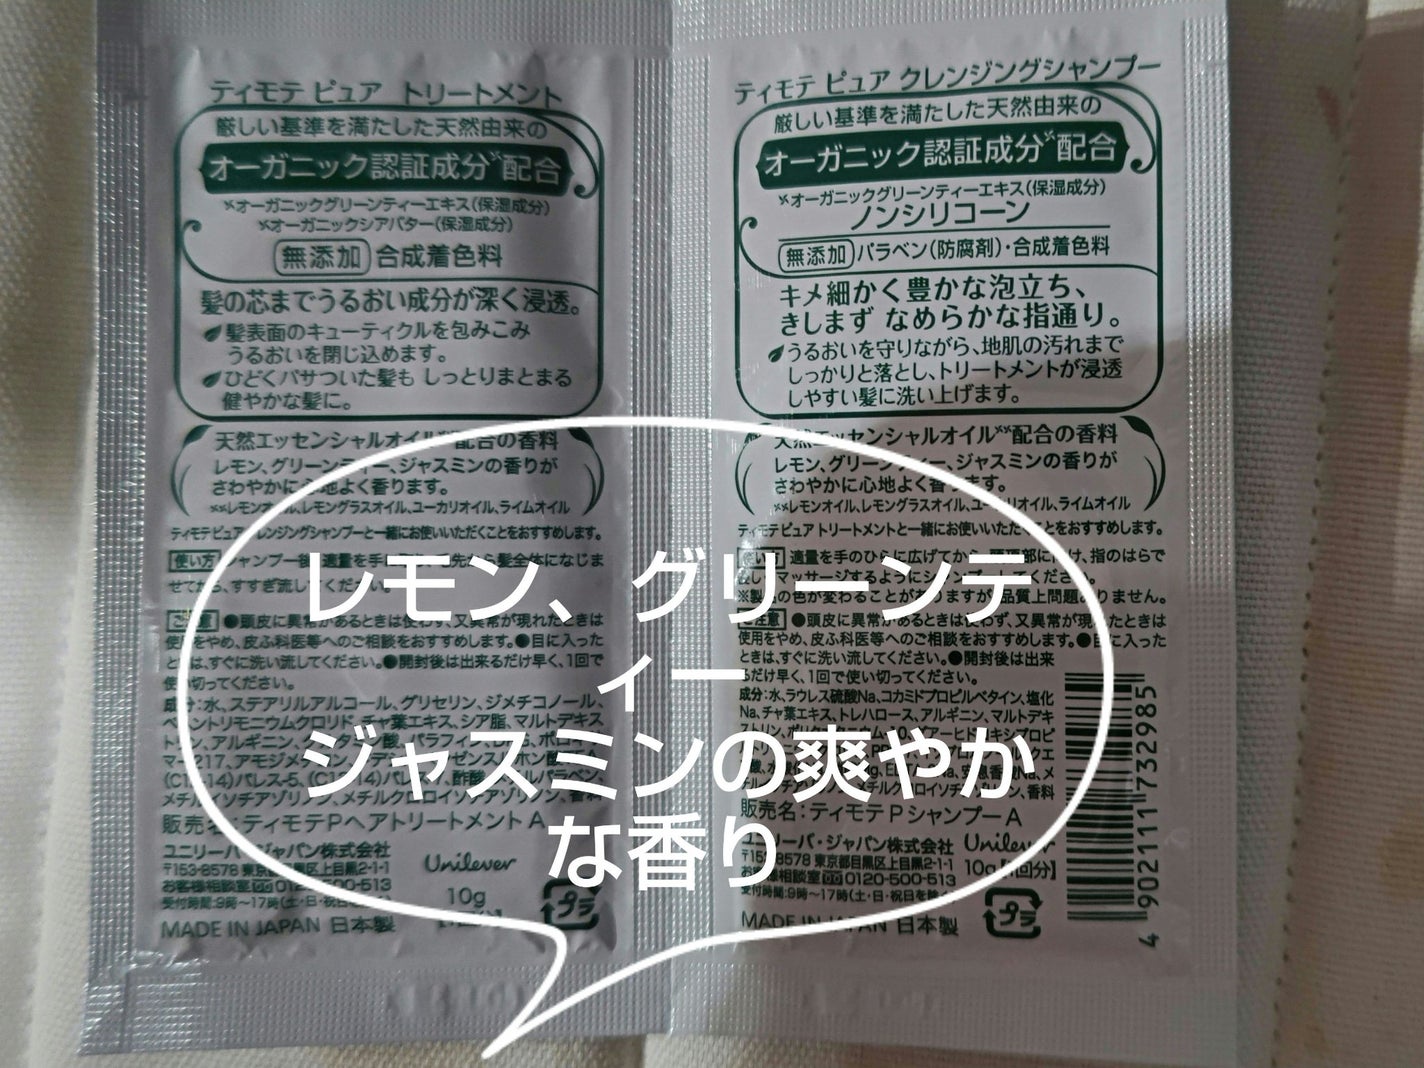 ティモテ ピュア トリートメント
厳しい基準を満たした天然由来の
オーガニック認証成分※配合
※オーガニックグリーンティーエキス(保湿成分)
※オーガニックシアバター(保湿成分)
無添加 合成着色料
髪の芯までうるおい成分が深く浸透。
髪表面のキューティクルを包みこみ
うるおいを閉じ込めます。
ひどくパサついた髪も しっとりまとまる
健やかな髪に。
天然エッセンシャルオイル※※配合の香料
レモン、グリーンティー、ジャスミンの香りが
さわやかに心地よく香ります。
※※レモンオイル、レモングラスオイル、ユーカリオイル、ライムオイル
ティモテピュア クレンジングシャンプーと一緒にお使いいただくことをおすすめします。
使い方 シャンプー後、適量を手に
先から髪全体になじま
せてから、すすぎ流してください。
ご注意 ●頭皮に異常があるときは使わず、又異常が現れたときは
使用をやめ、皮ふ科医等へのご相談をおすすめします。●目に入った
ときは、すぐに洗い流してください。●開封後は出来るだけ早く、1回で
使い切ってください。
成分:水、ステアリルアルコール、グリセリン、ジメチコノール、
ベヘントリモニウムクロリド、チャ葉エキス、シア脂、マルトデキス
トリン、アルギニン、
メチルイソチアゾリノン、メチルクロロイソチアゾリノン、香料
販売名:ティモテPヘアトリートメントA
ユニリーバ・ジャパン株式会社
〒153-8578 東京都目黒区上目黒2-1-1
お客様相談室 0120-500-513
受付時間:9時〜17時(土・日・祝日
Unilever
10g
MADE IN JAPAN 日本製
プラ
ティモテ ピュア クレンジングシャンプー
厳しい基準を満たした天然由来の
オーガニック認証成分※配合
※オーガニックグリーンティーエキス(保湿成分)
ノンシリコーン
無添加 パラベン(防腐剤)・合成着色料
キメ細かく豊かな泡立ち、
きしまず なめらかな指通り。
うるおいを守りながら、地肌の汚れまで
しっかりと落とし、トリートメントが浸透
しやすい髪に洗い上げます。
天然エッセンシャルオイル※※配合の香料
レモン、グリーンティー、ジャスミンの香りが
さわやかに心地よく香ります。
※※レモンオイル、レモングラスオイル、ユーカリオイル、ライムオイル
ティモテピュア トリートメントと一緒にお使いいただくことをおすすめします。
使い方 適量を手のひらに広げてから、頭頂部につけ、指のはらで
マッサージするように
ください。
※製品の色が変わることがありますが、品質上問題ありません。
ご注意 ●頭皮に異常があるときは使わず、又異常が現れたときは
使用をやめ、皮ふ科医等へのご相談をおすすめします。●目に入った
ときは、すぐに洗い流してください。●開封後は出来
るだけ早く、1回で使い切ってください。
成分:水、ラウレス硫酸Na、コカミドプロピルベタイン、塩化
Na、チャ葉エキス、トレハロース、アルギニン、マルトデキ
ストリン、
販売名:ティモテPシャンプーA
ユニリーバ・ジャパン株式会社
〒153-8578 東京都目黒区上目黒2-1-1
お客様相談室 0120-500-513
受付時間:9時〜17時(土・日・祝日を除く)
Unilever
10g【1回分】
MADE IN JAPAN 日本製
プラ
4 902111 732985
レモン、グリーンテ
ィー
ジャスミンの爽やか
な香り